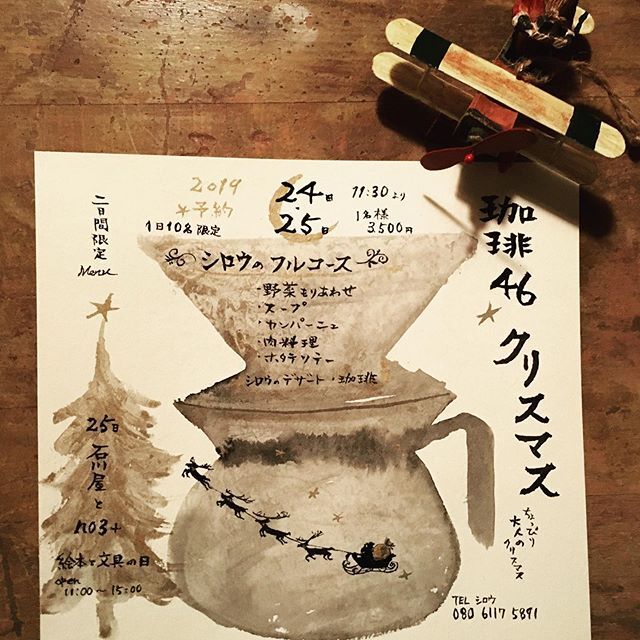 珈琲46 クリスマス
ちょっぴり
大人の
クリスマス
2019
予約
1日10名限定
24日
25日
11:30より
1名様
3,500円
二日間限定
Menu
シロウのフルコース
・野菜もりあわせ
・スープ
・カンパーニュ
・肉料理
・ホタテソテー
シロウのデザート・珈琲
25日
石川屋と
no3+
絵本と文具の日
open
11:00〜15:00
TEL シロウ
080 6117 5891